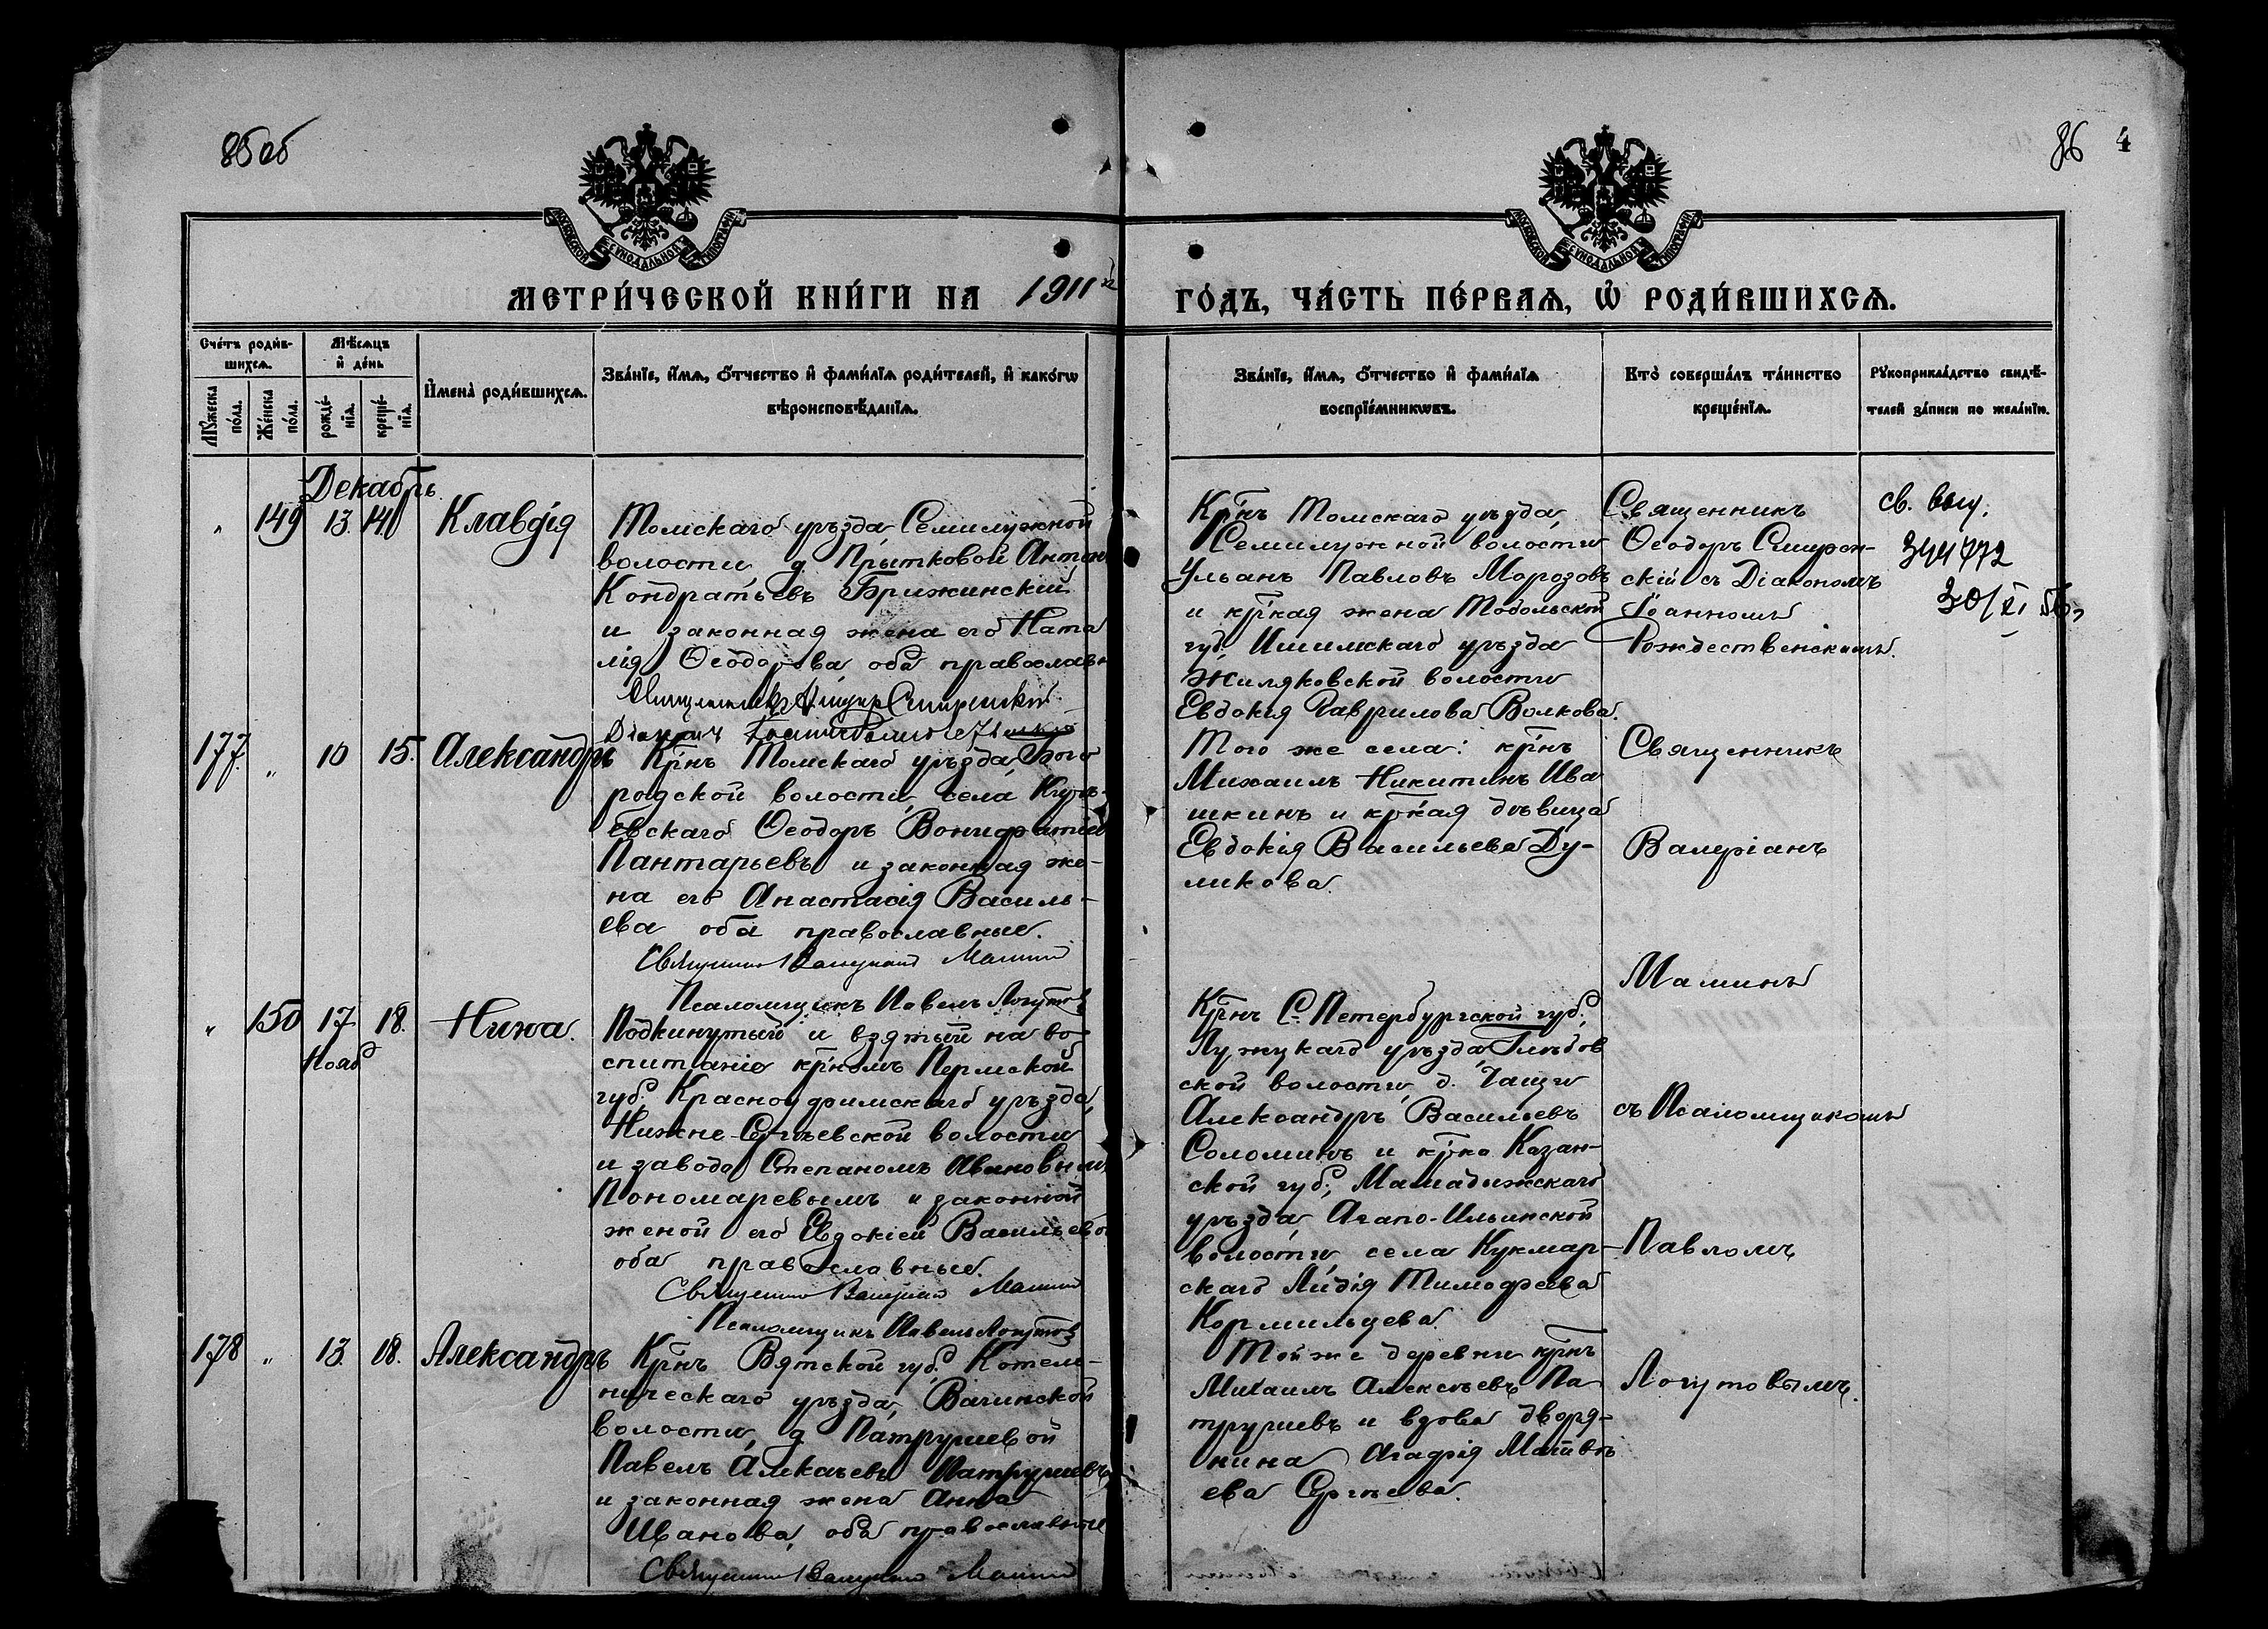 85об
86 4
МОСКОВСКОЙ СѴНОДАЛЬНОЙ ТИПОГРАФІИ
МОСКОВСКОЙ СѴНОДАЛЬНОЙ ТИПОГРАФІИ
МЕТРИ́ЧЕСКОЙ КНИ́ГИ НА 1911й
ГО́ДЪ, ЧА́СТЬ ПЕ́РВАѦ, Ѡ҆ РОДИ́ВШИХСѦ.
Сче́тъ роди́в-
шихсѧ.
Мꙋ́жеска по́ла.
Же́нска по́ла.
Мѣ́сѧцъ
и҆ де́нь
рожде́-
нїѧ.
креще́-
нїѧ.
И҆мена̀ роди́вшихсѧ.
Зва́нїе, и҆́мѧ, ѻ҆́тчество и҆ фами́лїѧ роди́телей, и҆ како́гѡ
вѣроисповѣ́данїѧ.
Зва́нїе, и҆́мѧ, ѻ҆́тчество и҆ фами́лїѧ
воспрїе́мникѡвъ.
Кто̀ соверша́лъ та́инство
креще́нїѧ.
Рꙋкоприкла́дство свидѣ́-
телей за́писи по жела́нїю.
Декабрь
149 13. 14. Клавдія
Томскаго уѣзда, Семилужной
волости д. Прытковой Антон
Кондратьевъ Брижинскій
и законная жена его Ната
лія Ѳеодорова, оба православн
Крнъ Томскаго уѣзда,
Семилужной волости
Ульанъ Павловъ Морозовъ
и кр҃кая жена Тобольской
губ. Ишимскаго уѣзда
Жиляковской волости
Евдокія Гаврилова Волкова.
Священникъ
Ѳеодоръ Смирен-
скій съ Діакономъ
Іоанномъ
Рождественскимъ.
св. выд.
344772
177. " 10 15. Александръ
Крнъ Томскаго уѣзда, Бого
родской волости, села
Ѳеодоръ Вонифатіев
Пантарьевъ и законная же-
на его Анастасія Василь-
ева оба православные.
Священникъ Валеріанъ Маминъ
Псаломщикъ Павелъ Логутов
Того же села: крнъ
Михаилъ Никитинъ Ива
шкинъ и кр҃кая дѣвица
Евдокія Васильева Ду-
ликова.
Священникъ
Валеріанъ
Маминъ
съ Псаломщикомъ
Павломъ
Логутовымъ.
" 150 17 18. Нина.
Нояб
Подкинутый и взятый на во-
спитаніе кр҃номъ Пермской
губ. Красноуфимскаго уѣзда,
Нижне-Сергіевской волости
и завода Степаномъ Ивановым
Пономаревымъ и законной
женой его Евдокіей Васильево
оба православные.
Священникъ Валеріанъ Маминъ
Псаломщикъ Павелъ Логутов
Крнъ С. Петербургской губ.,
Лужскаго уѣзда, Глѣбов
ской волости, д. Чащи
Александръ Васильевъ
Соломинъ и кр҃ка Казан-
ской губ., Мамадыжскаго
уѣзда, Агапо-Ильинской
волости, села Кукмар-
скаго Лидія Тимофеева
Кормильцева.
178 " 13. 18. Александръ
Крнъ Вятской губ. Котель-
ническаго уѣзда, Вагинской
волости, д. Патрушевой
Павелъ Алексѣевъ Патрушевъ
и законная жена Анна
Иванова, оба православные
Священникъ Валеріанъ Маминъ
Той же деревни крнъ
Михаилъ Алексѣевъ Па
трушевъ и вдова дворя-
нина Агафія Матвѣ
ева Сергѣева.